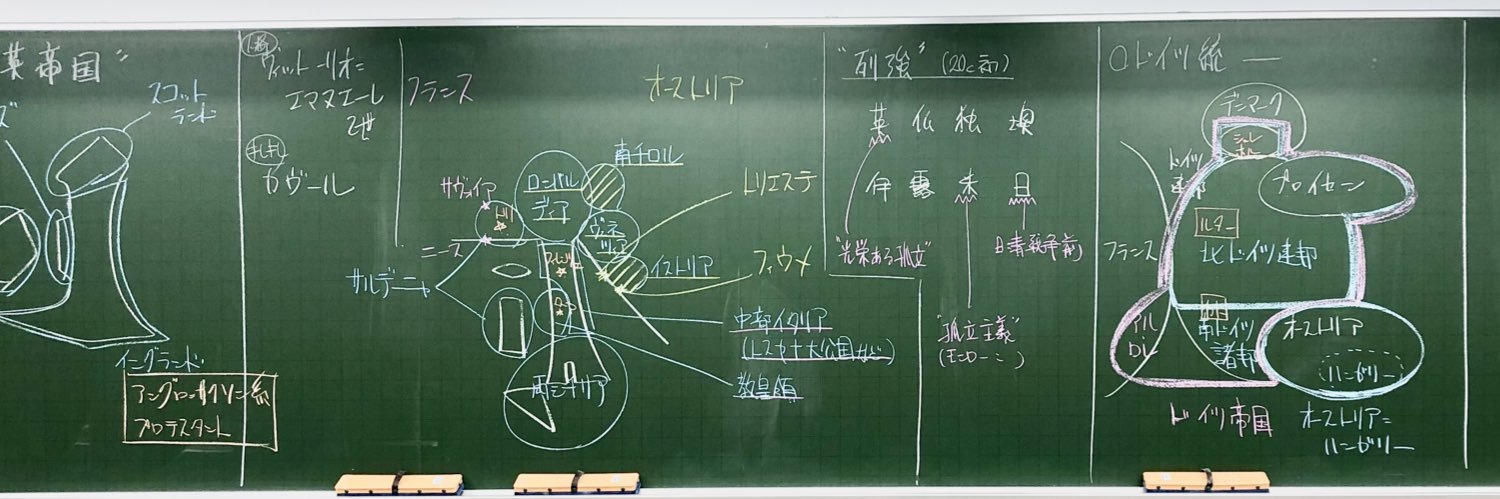 英帝国"
ズ
スコット
ランド
イングランド
アングロ=サクソン系
プロテスタント
ヴィットーリオ=
エマヌエーレ
2世
カヴール
フランス
オーストリア
サヴォイア
トリノ
ニース
サルデーニャ
ロンバル
ディア
南チロル
ヴェネ
ツィア
トリエステ
イストリア
フィウメ
ローマ
中部イタリア
(トスカナ大公国など)
教皇領
両シチリア
"列強" (20c初)
英 仏 独 墺
伊 露 米 日
"光栄ある孤立"
日清戦争前
"孤立主義"
(モンロー〃)
○ドイツ統一
デンマーク
シュレ
ホル
ドイツ
連邦
プロイセン
ルター
フランス
北ドイツ連邦
アル
ロレ
カト
南ドイツ
諸邦
オーストリア
ハンガリー
ドイツ帝国
オーストリア=
ハンガリー